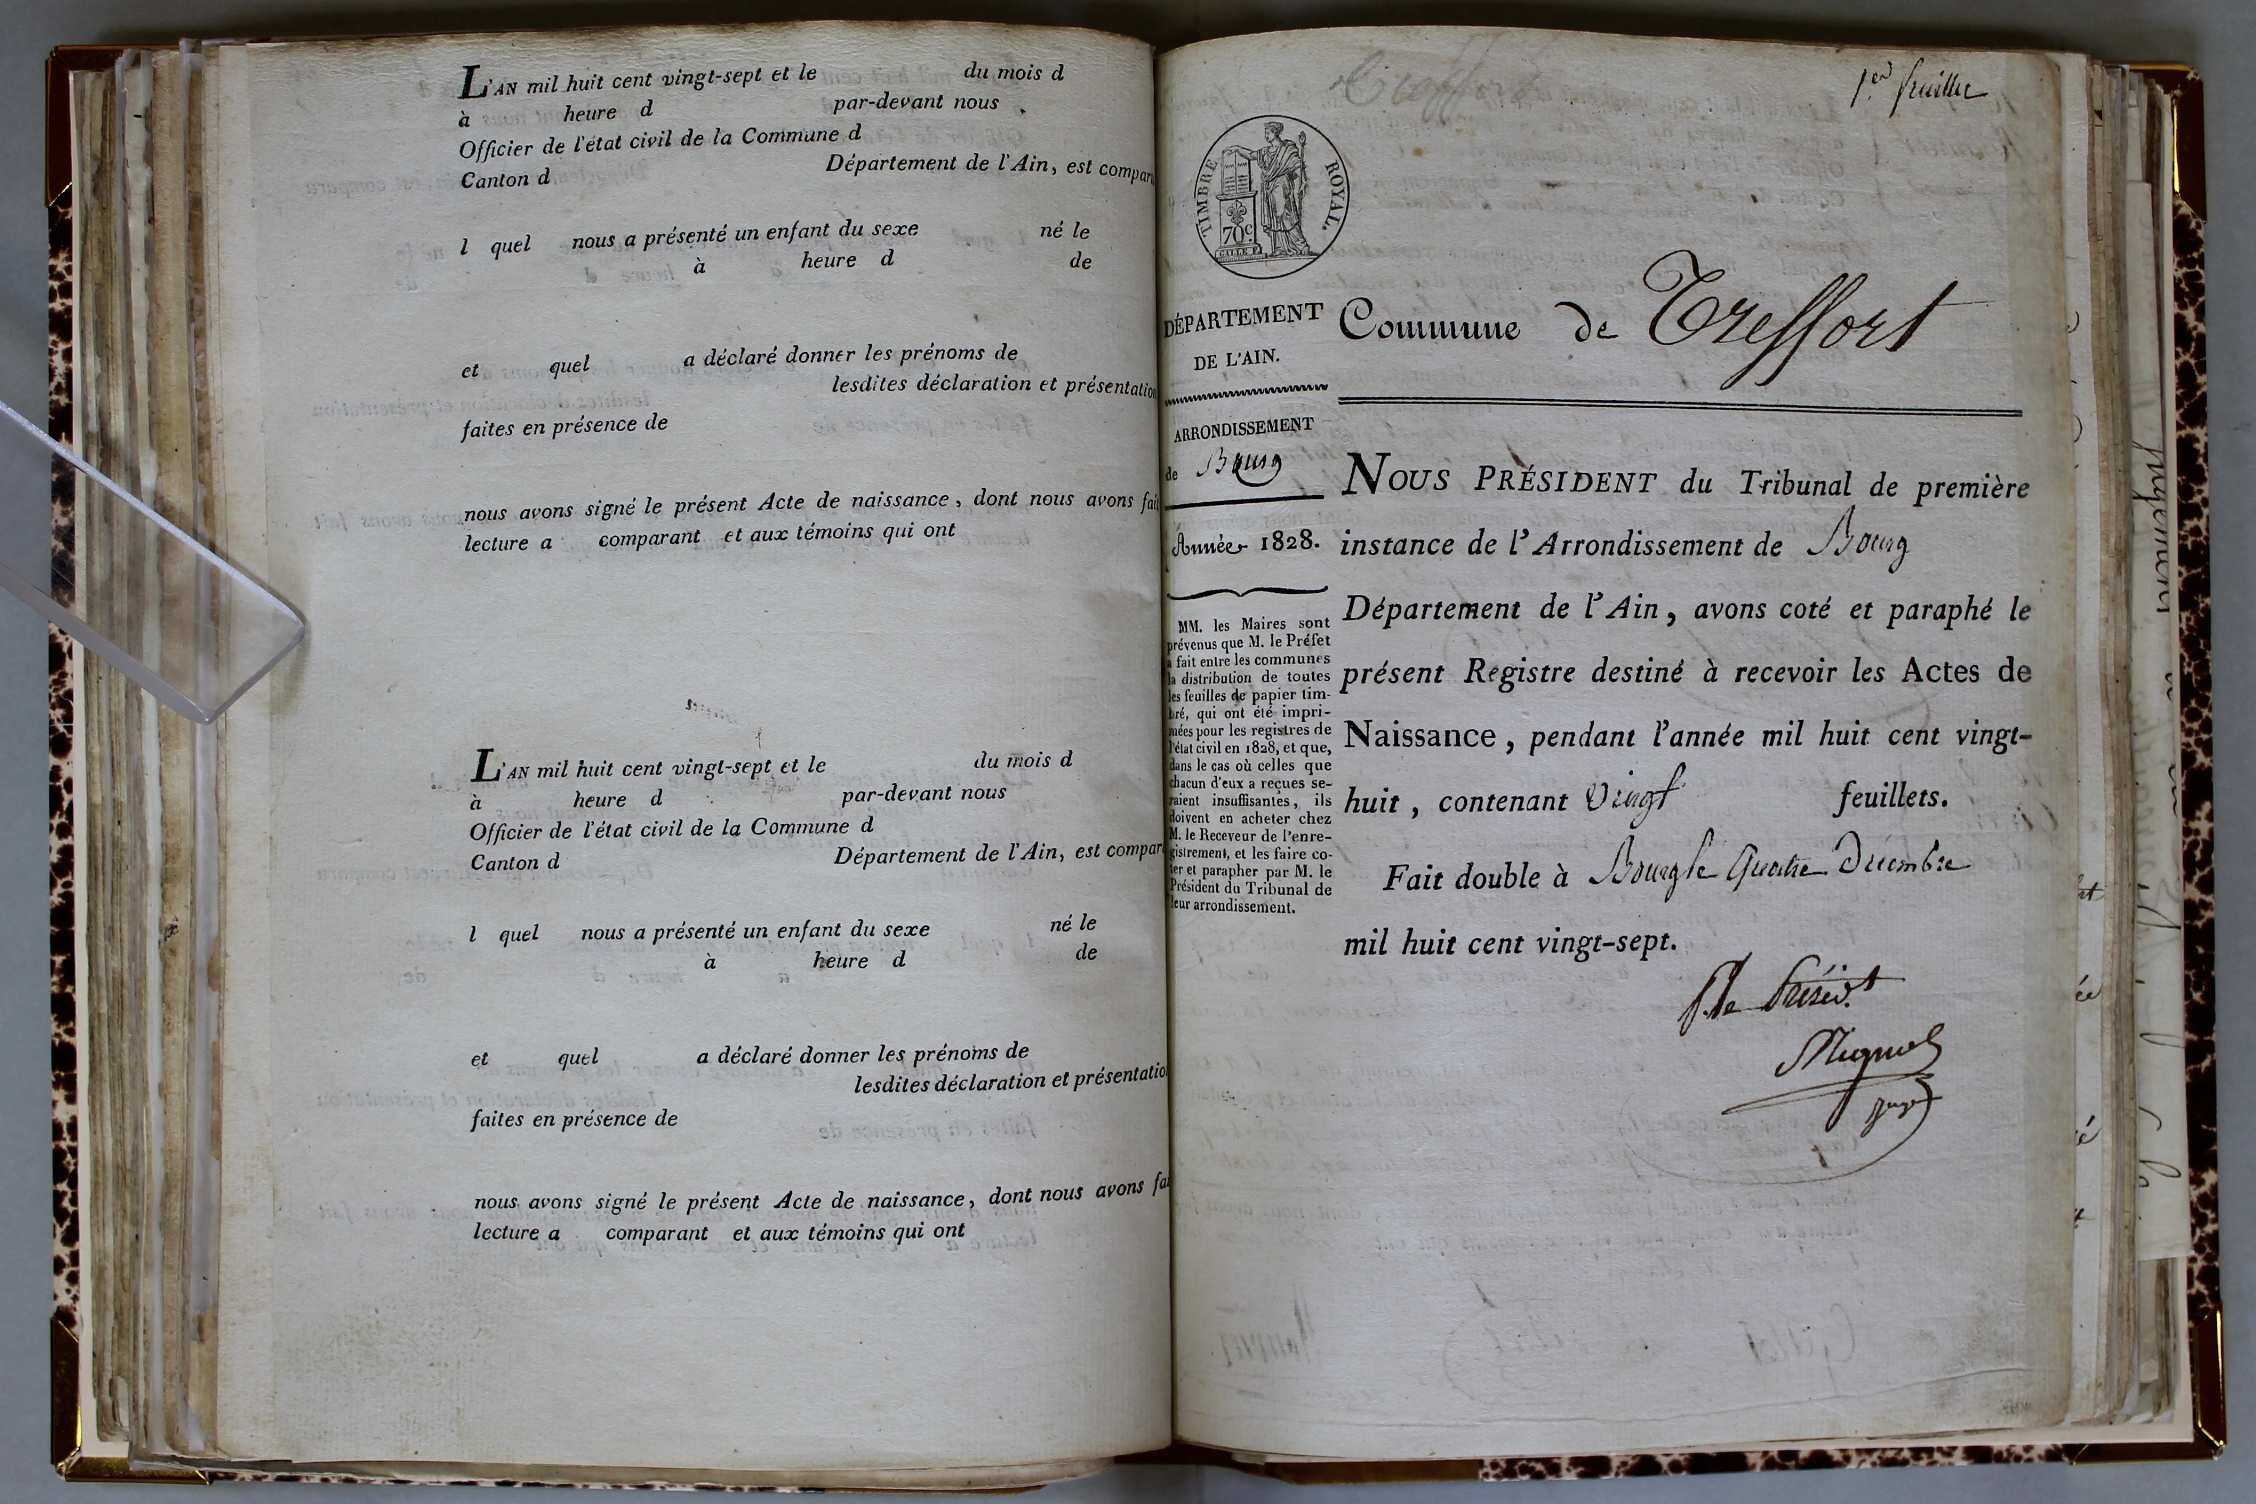 L'AN mil huit cent vingt-sept et le du mois d
à heure d par-devant nous
Officier de l'état civil de la Commune d
Canton d Département de l'Ain, est compar
l quel nous a présenté un enfant du sexe né le
à heure d de
et quel a déclaré donner les prénoms de
lesdites déclaration et présentation
faites en présence de
nous avons signé le présent Acte de naissance, dont nous avons fait
lecture a comparant et aux témoins qui ont
L'AN mil huit cent vingt-sept et le du mois d
à heure d par-devant nous
Officier de l'état civil de la Commune d
Canton d Département de l'Ain, est compar
l quel nous a présenté un enfant du sexe né le
à heure d de
et quel a déclaré donner les prénoms de
lesdites déclaration et présentatio
faites en présence de
nous avons signé le présent Acte de naissance, dont nous avons fai
lecture a comparant et aux témoins qui ont
1er feuillet
TIMBRE ROYAL.
70c
DÉPARTEMENT
DE L'AIN.
ARRONDISSEMENT
de Bourg
Année 1828.
MM. les Maires sont
prévenus que M. le Préfet
a fait entre les communes
la distribution de toutes
les feuilles de papier tim-
bré, qui ont été impri-
mées pour les registres de
l'état civil en 1828, et que,
dans le cas où celles que
chacun d'eux a reçues se-
raient insuffisantes, ils
doivent en acheter chez
M. le Receveur de l'enre-
gistrement, et les faire co-
ter et parapher par M. le
Président du Tribunal de
leur arrondissement.
Commune de Treffort
NOUS PRÉSIDENT du Tribunal de première
instance de l'Arrondissement de Bourg
Département de l'Ain, avons coté et paraphé le
présent Registre destiné à recevoir les Actes de
Naissance, pendant l'année mil huit cent vingt-
huit, contenant Vingt feuillets.
Fait double à Bourg le quatre Décembre
mil huit cent vingt-sept.
P. le Présidt
juge